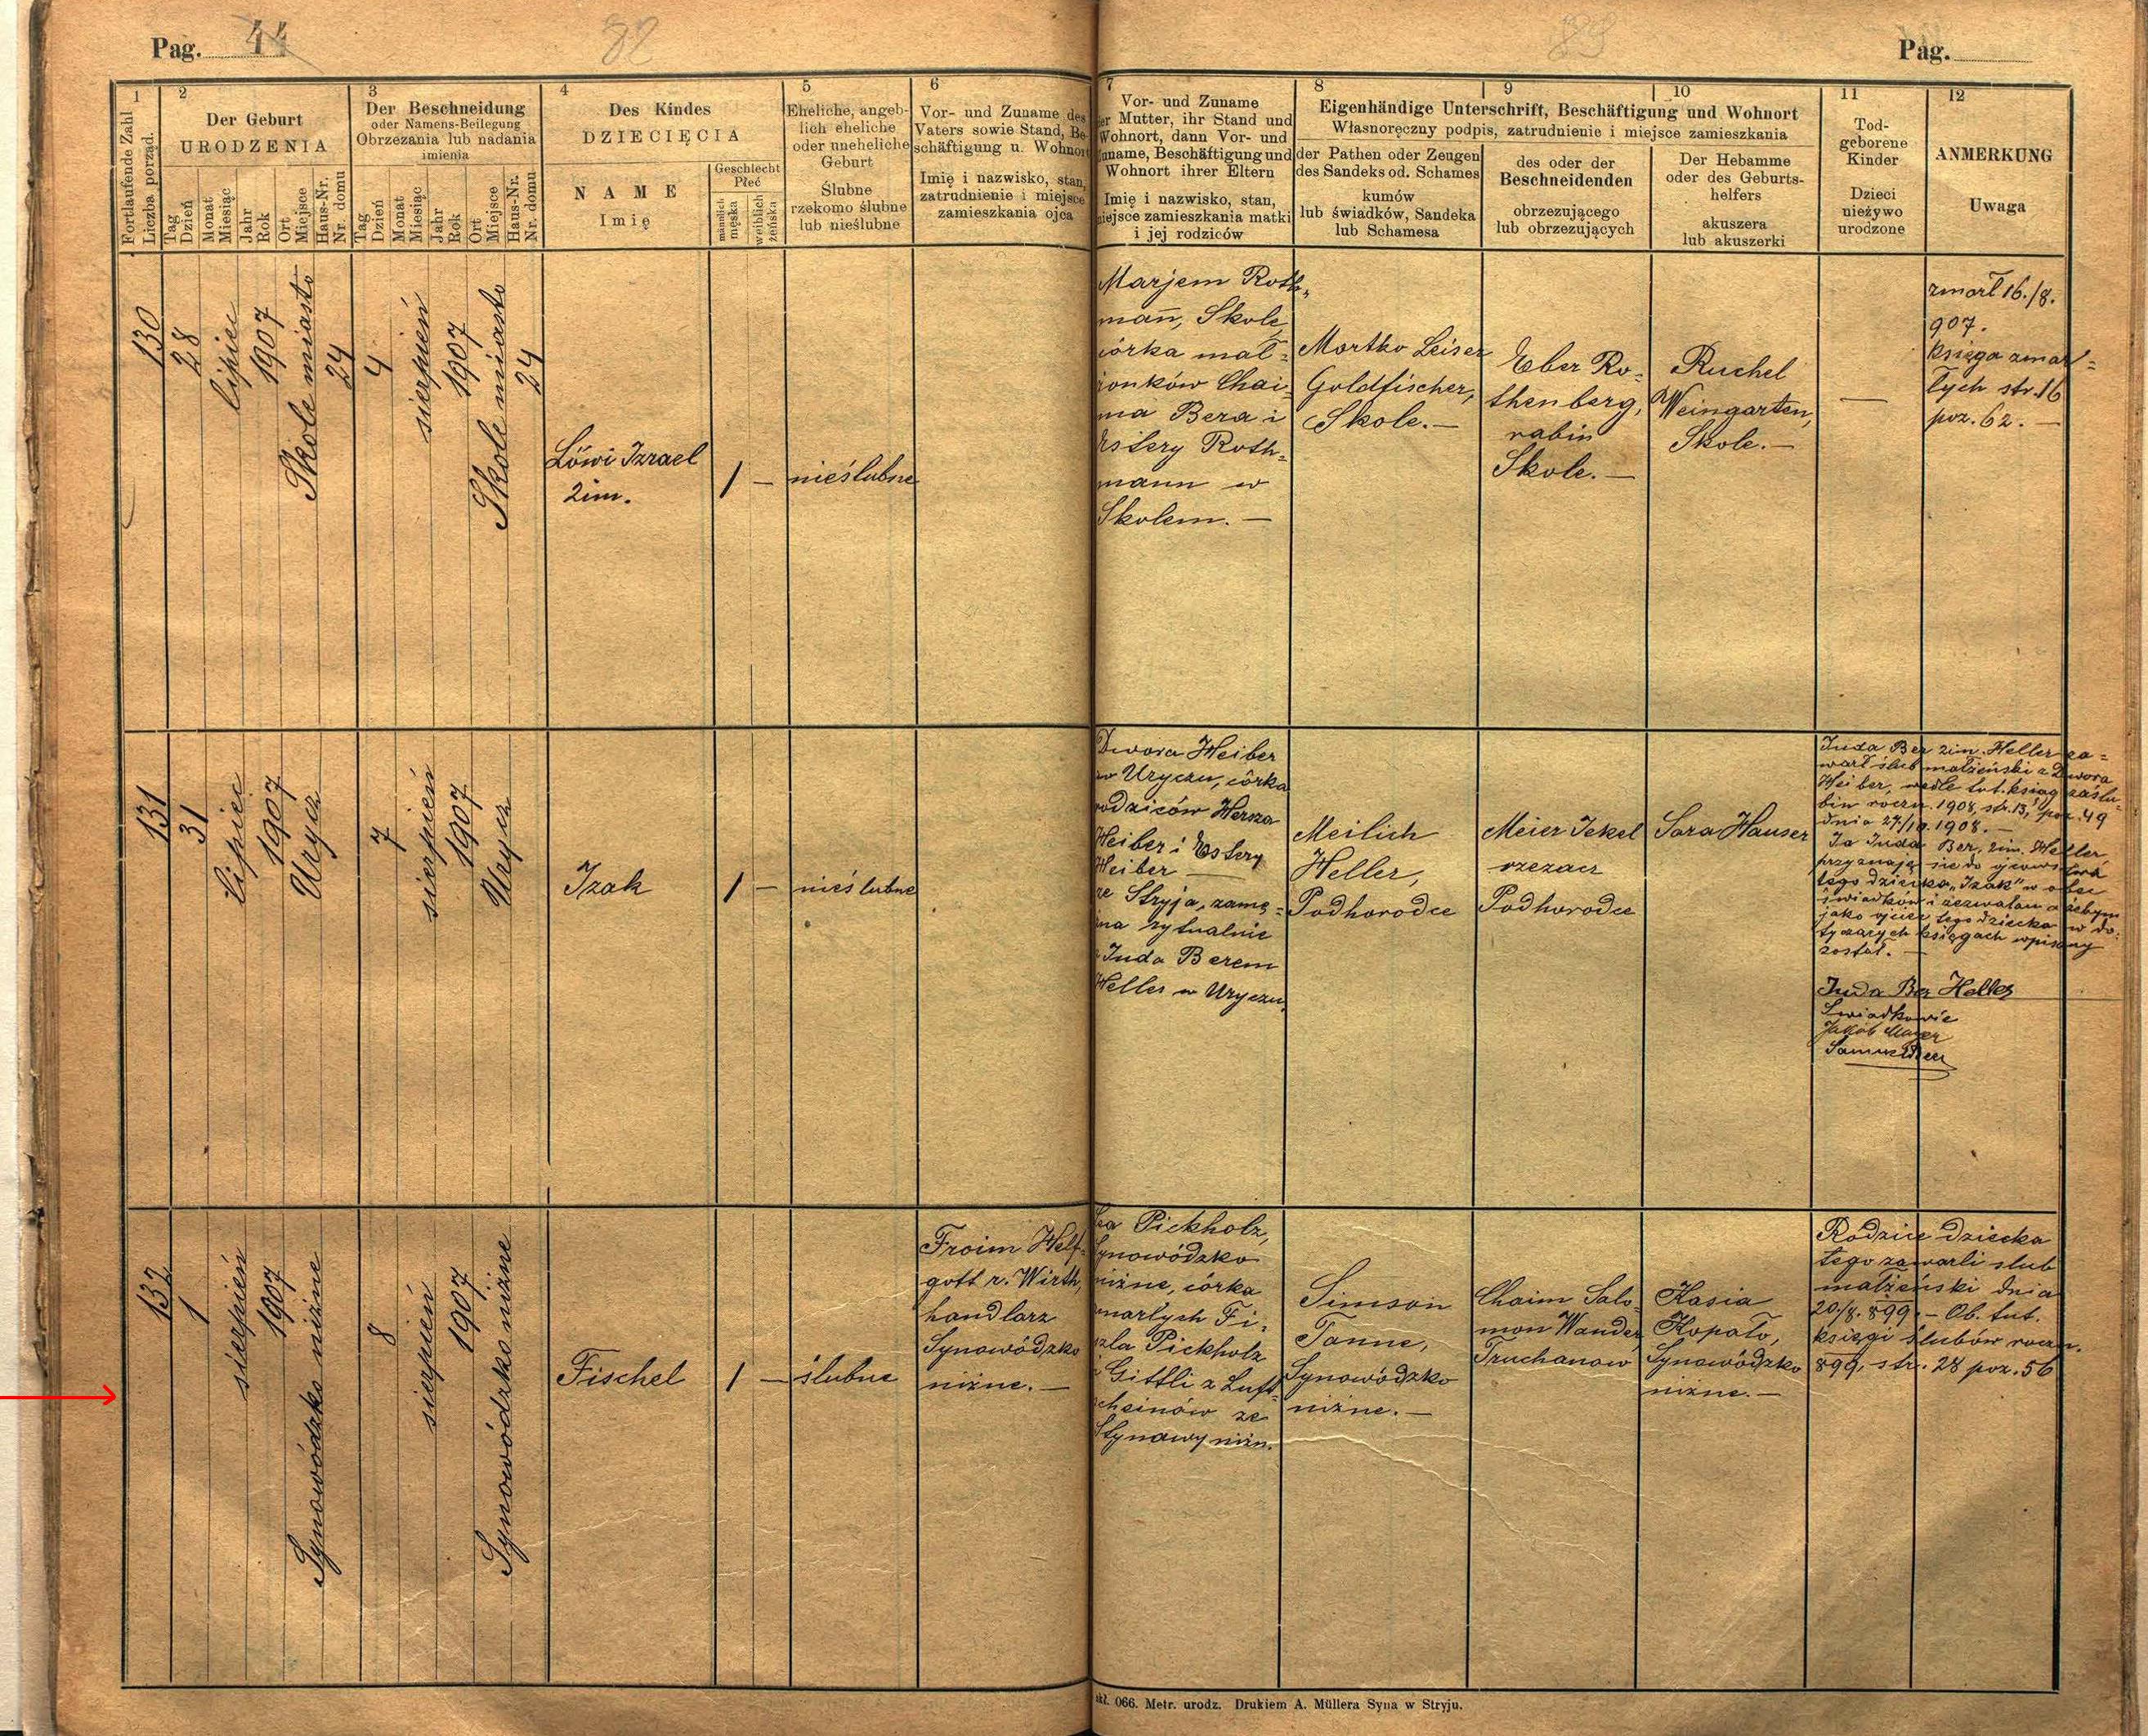 Pag. 44
82
83
Pag.
1
Fortlaufende Zahl
Liczba porząd.
2
Der Geburt
URODZENIA
Tag
Dzień
Monat
Miesiąc
Jahr
Rok
Ort
Miejsce
Haus-Nr.
Nr. domu
3
Der Beschneidung
oder Namens-Beilegung
Obrzezania lub nadania
imienia
Tag
Dzień
Monat
Miesiąc
Jahr
Rok
Ort
Miejsce
Haus-Nr.
Nr. domu
4
Des Kindes
DZIECIĘCIA
NAME
Imię
Geschlecht
Płeć
männlich
męska
weiblich
żeńska
5
Eheliche, angeb-
lich eheliche
oder uneheliche
Geburt
Ślubne
rzekomo ślubne
lub nieślubne
6
Vor- und Zuname des
Vaters sowie Stand, Be-
schäftigung u. Wohnort
Imię i nazwisko, stan,
zatrudnienie i miejsce
zamieszkania ojca
7
Vor- und Zuname
der Mutter, ihr Stand und
Wohnort, dann Vor- und
Zuname, Beschäftigung und
Wohnort ihrer Eltern
Imię i nazwisko, stan,
miejsce zamieszkania matki
i jej rodziców
8
9
10
Eigenhändige Unterschrift, Beschäftigung und Wohnort
Własnoręczny podpis, zatrudnienie i miejsce zamieszkania
der Pathen oder Zeugen
des Sandeks od. Schames
kumów
lub świadków, Sandeka
lub Schamesa
des oder der
Beschneidenden
obrzezującego
lub obrzezujących
Der Hebamme
oder des Geburts-
helfers
akuszera
lub akuszerki
11
Tod-
geborene
Kinder
Dzieci
nieżywo
urodzone
12
ANMERKUNG
Uwaga
130
28
lipiec
1907
Skole miasto
24
4
sierpień
1907
Skole miasto
24
Löwi Izrael
2im.
1 —
nieślubne
Marjem Roth-
mann, Skole,
córka mał-
żonków Chai-
ma Bera i
Estery Roth-
mann w
Skolem. —
Mortko Leiser
Goldfischer,
Skole. —
Eber Ro-
thenberg,
rabin
Skole. —
Ruchel
Weingarten,
Skole. —
—
zmarł 16./8.
907.
księga zmar-
łych str. 16
poz. 62. —
131
31
lipiec
1907
Urycz
7
sierpień
1907
Urycz
Izak
1 —
nieślubne
Dwora Heiber
w Uryczu, córka
rodziców Hersza
Heiber i Estery
Heiber —
ze Stryja, zamę-
żna rytualnie
z Juda Berem
Heller w Uryczu,
Meilich
Heller,
Podhorodce
Meier Jekel
rzezacz
Podhorodce
Sara Hauser
Juda Ber 2im. Heller za-
warł ślub małżeński z Dwora
Heiber, wedle tut. ksiąg zaślu-
bin roczn. 1908, str. 13, poz. 49
dnia 27/10. 1908. —
Ja Juda Ber, 2im. Heller,
przyznaję się do ojcowstwa
tego dziecka „Izak" w obec
świadków i zezwalam ażebym
jako ojciec tego dziecka w do-
tyczących księgach wpisany
został. —
Juda Ber Heller
Świadkowie
Jakób Mayer
132
1
sierpień
1907
Synowódzko niżne
8
sierpień
1907
Synowódzko niżne
Fischel
1 —
ślubne
Froim Helf-
gott r. Wirth,
handlarz
Synowódzko
niżne. —
Pickholz,
Synowódzko
niżne, córka
zmarłych Fi-
szla Pickholz
i Gittli z Luft-
scheinów ze
Stynawy niżn.
Simson
Tanne,
Synowódzko
niżne. —
Chaim Salo-
mon Wander,
Truchanow
Kasia
Kopało,
Synowódzko
niżne. —
Rodzice dziecka
tego zawarli slub
małżeński dnia
20./8. 899. — Ob. tut.
księgi ślubów roczn.
899, str. 28 poz. 56
066. Metr. urodz. Drukiem A. Müllera Syna w Stryju.